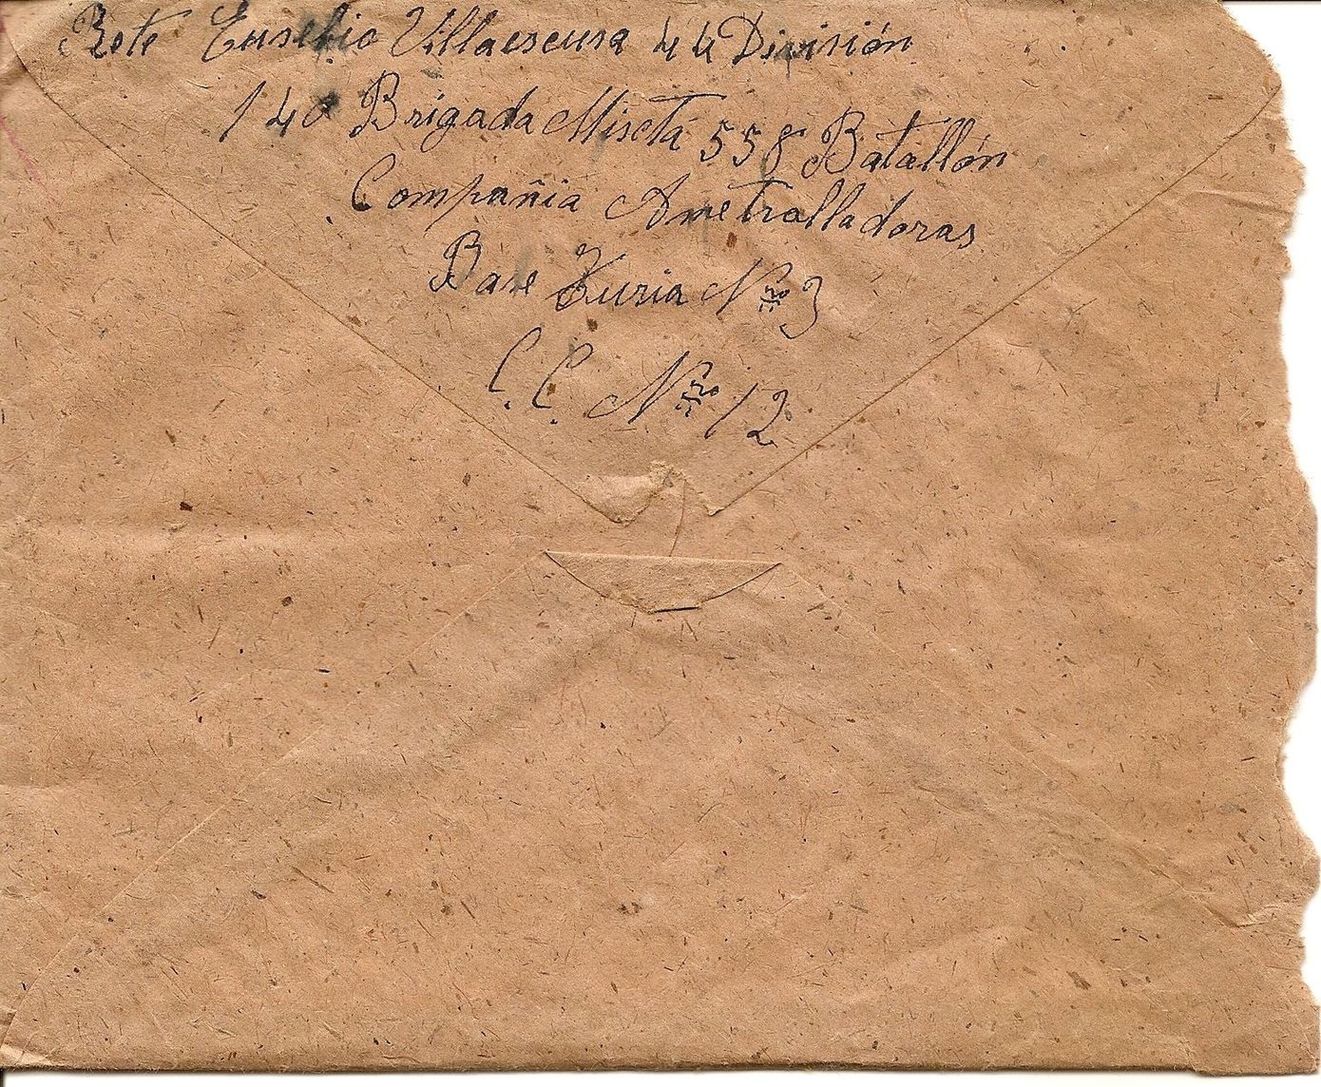 Rote Eusebio Villaescusa 44 División
140 Brigada Miscta 558 Batallón
Compañia Ametralladoras
Base Turia Nro 3
C.C. Nro 12